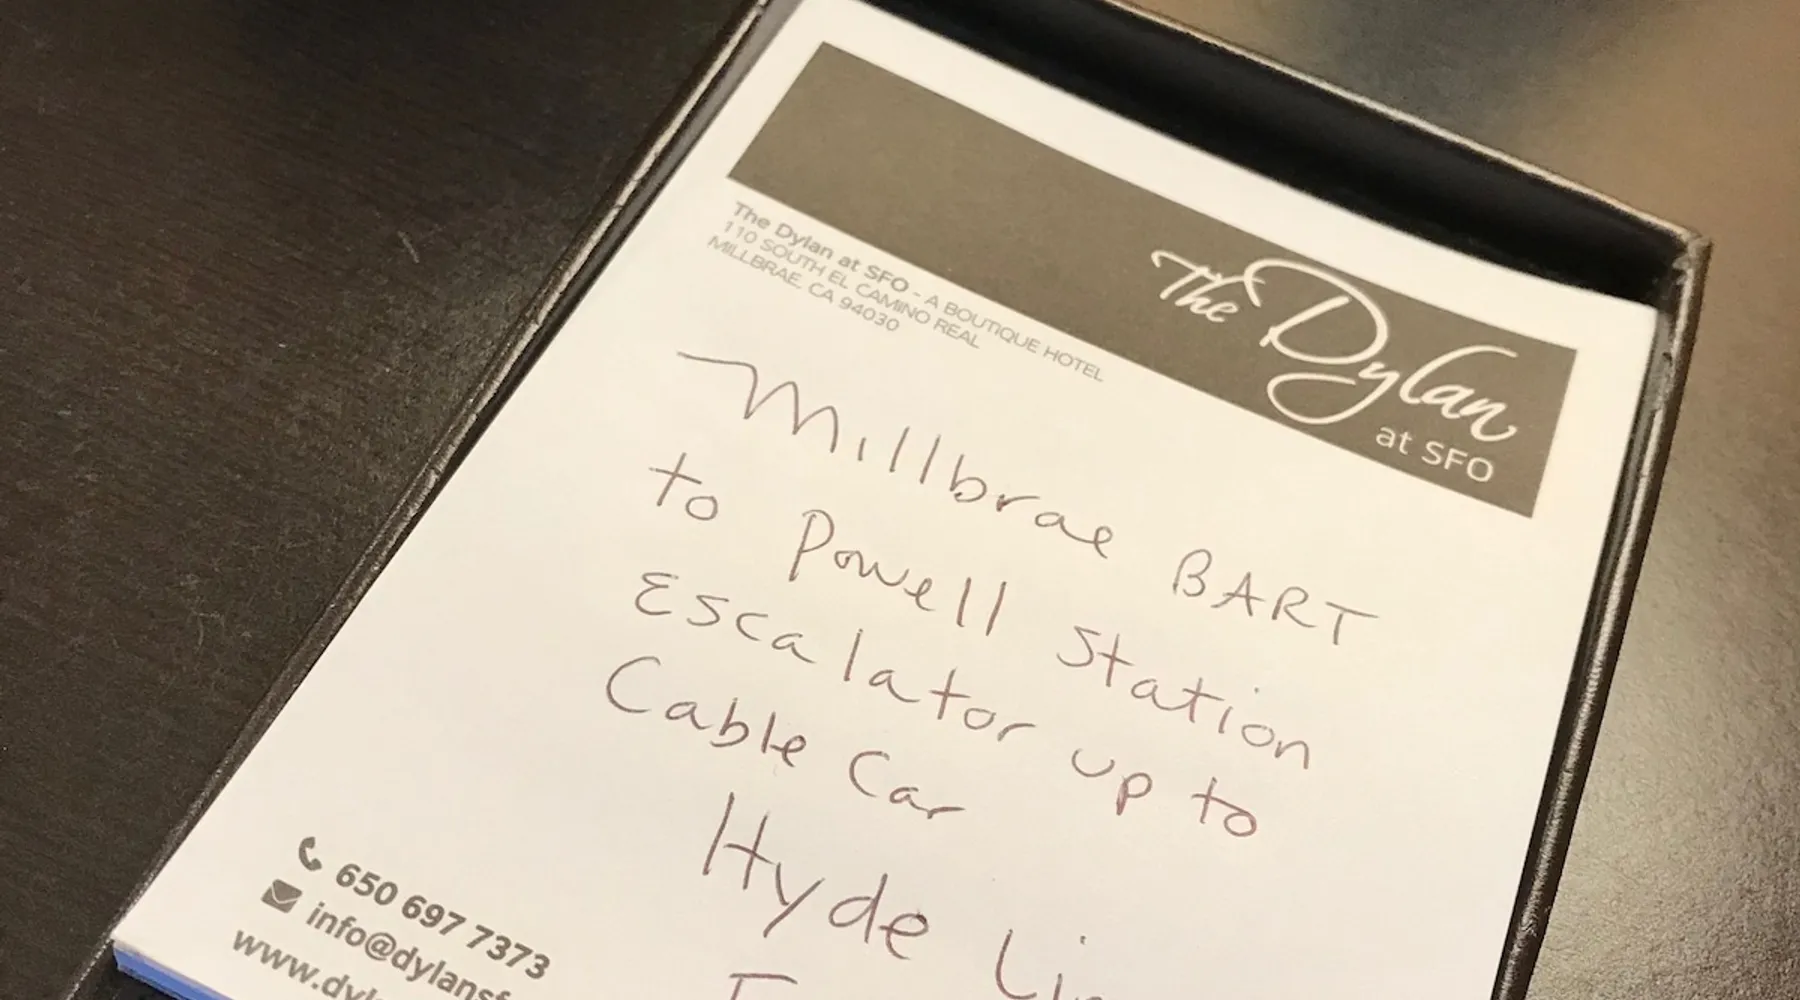 The Dylan
at SFO
The Dylan at SFO - A BOUTIQUE HOTEL
110 SOUTH EL CAMINO REAL
MILLBRAE, CA 94030
Millbrae BART
to Powell Station
Escalator up to
Cable Car
Hyde
650 697 7373